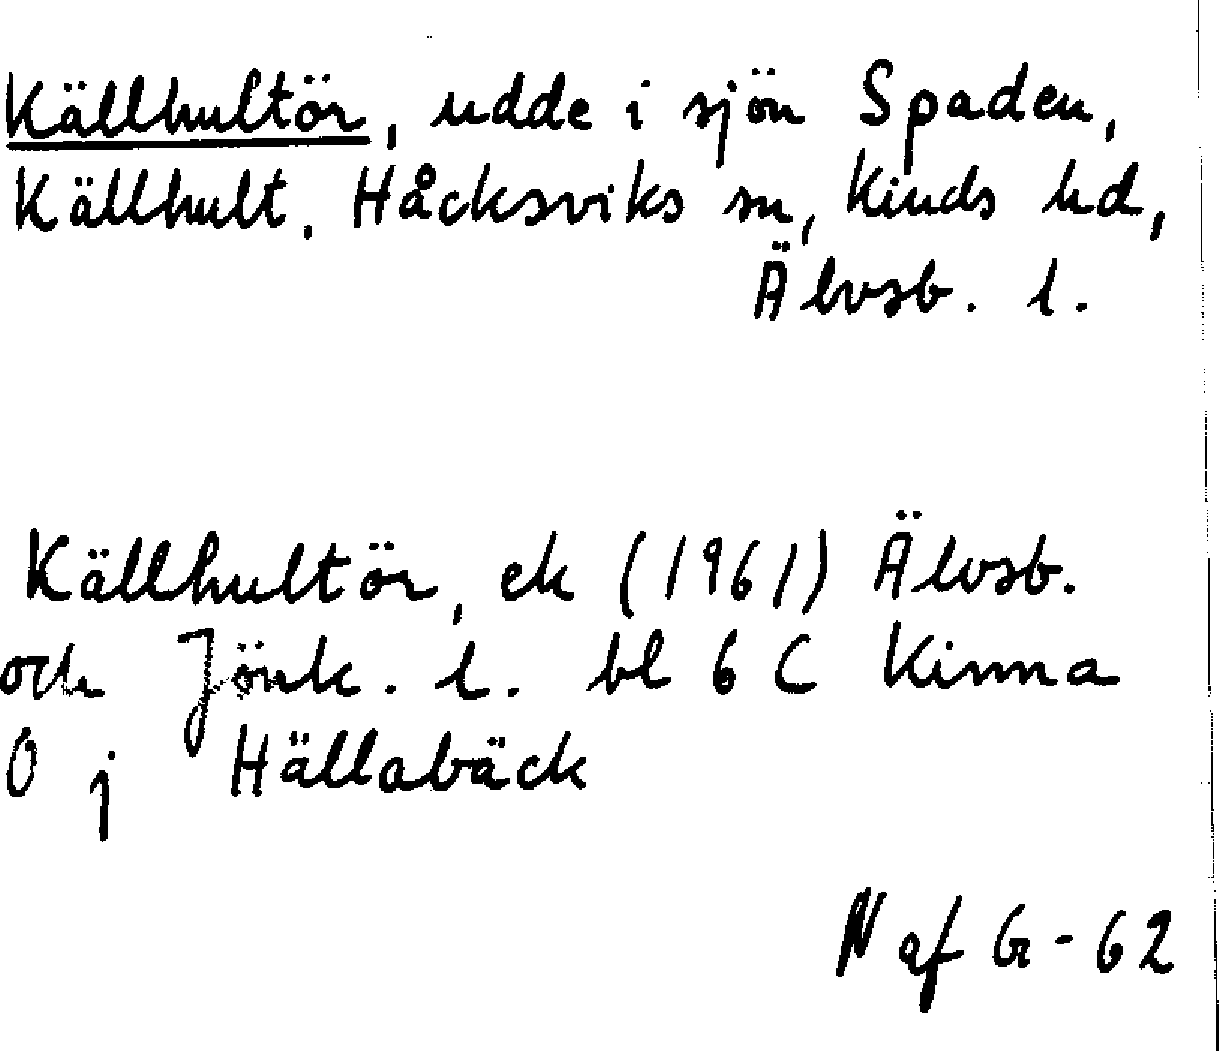 Källhultör, udde i sjön Spaden,
Källhult. Håcksviks sn, Kinds hd,
Älvsb. l.
Källhultör, ek (1961) Älvsb.
och Jönk. l. bl 6 C Kinna
O j Hällabäck
N af G-62